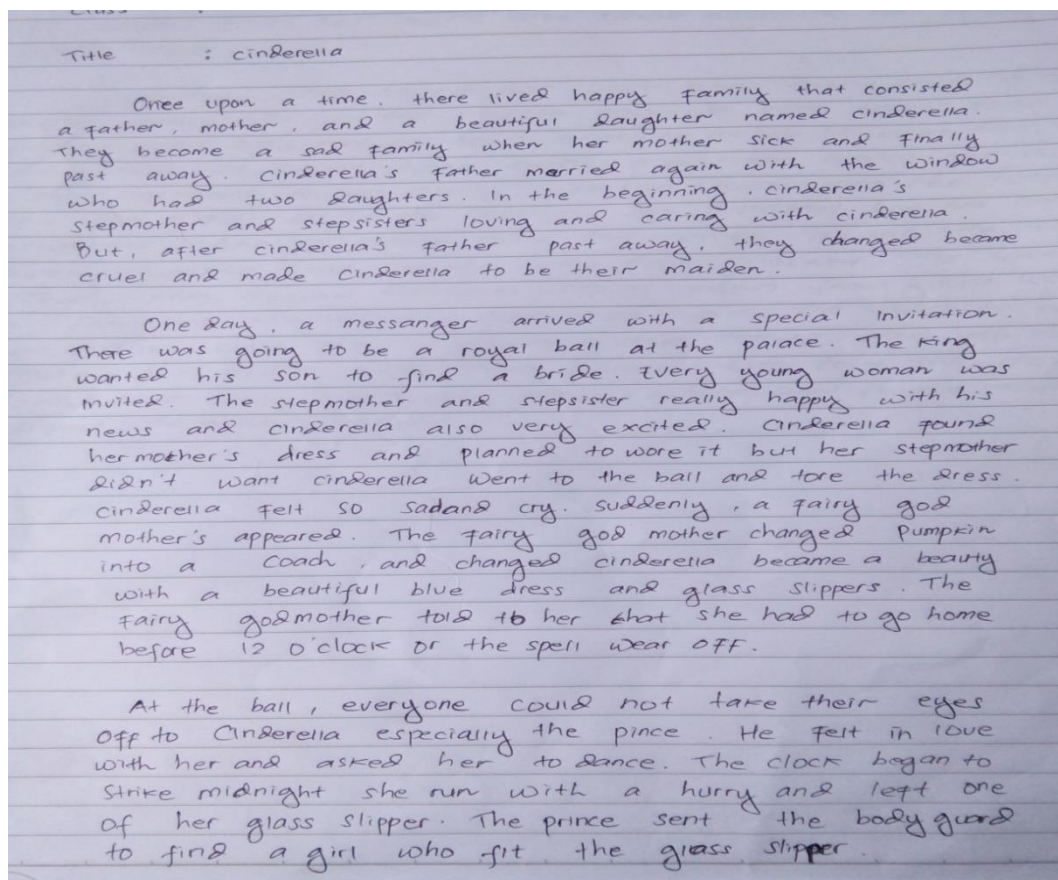 Title : cinderella
Once upon a time, there lived happy family that consisted
a father, mother, and a beautiful daughter named cinderella.
They become a sad family when her mother sick and finally
past away. cinderella's father married again with the window
who had two daughters. In the beginning, cinderella's
stepmother and stepsisters loving and caring with cinderella.
But, after cinderella's father past away, they changed became
cruel and made cinderella to be their maiden.
One day, a messanger arrived with a special Invitation.
There was going to be a royal ball at the palace. The King
wanted his son to find a bride. Every young woman was
invited. The stepmother and stepsister really happy with his
news and cinderella also very excited. cinderella found
her mother's dress and planned to wore it but her stepmother
didn't want cinderella went to the ball and tore the dress.
cinderella felt so sadand cry. suddenly, a fairy god
mother's appeared. The fairy god mother changed Pumpkin
into a coach, and changed cinderella became a beauty
with a beautiful blue dress and glass slippers. The
fairy godmother told to her that she had to go home
before 12 o'clock or the spell wear off.
At the ball, everyone could not take their eyes
off to Cinderella especially the pince. He felt in love
with her and asked her to dance. The clock began to
strike midnight she run with a hurry and left one
of her glass slipper. The prince sent the body guard
to find a girl who fit the glass slipper.